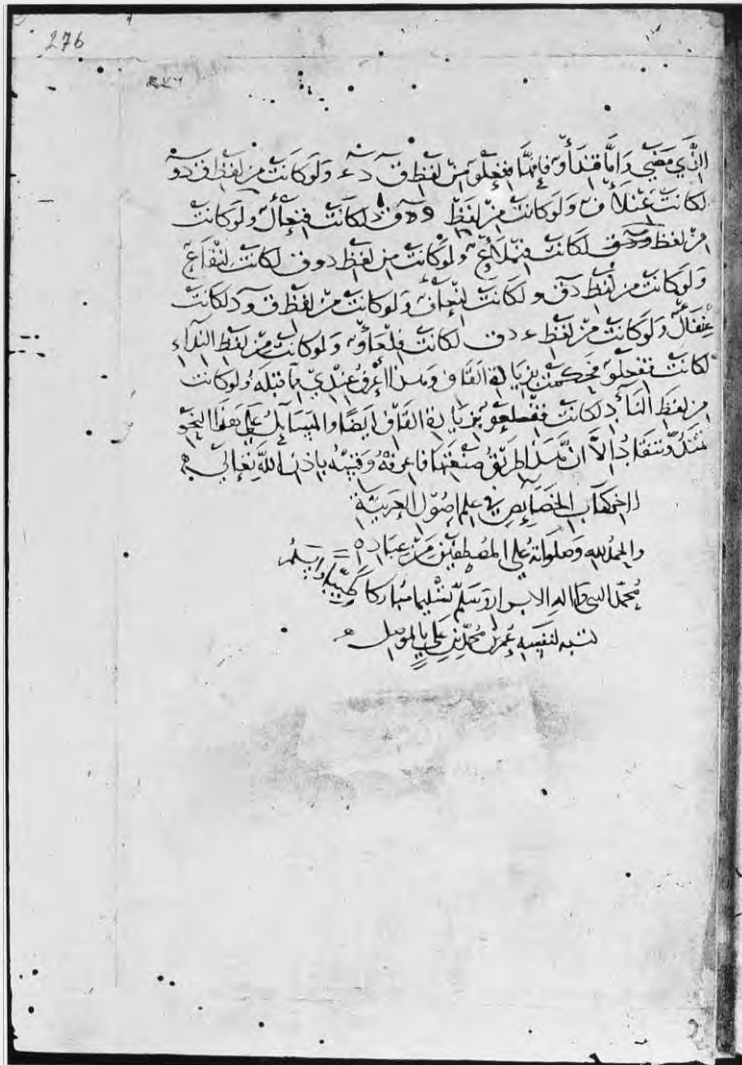 276
٢٧٦
الذي مضى واما قندأو فانما فنعلو من لفظ ق د ء ولو كانت من لفظ ق د و
لكانت عنلأ ولو كانت من لفظ لكانت فنعأل ولو كانت
من لفظ لكانت ولو كانت من لفظ د و ق لكانت لنفاع
ولو كانت من لفظ د ق و لكانت لنعاف ولو كانت من لفظ ق و د لكانت
ولو كانت من لفظ ء د ق لكانت ولو كانت من لفظ النداء
لكانت قفعلو فحكمت بزيادة القاف وهذا اغرب عندي مما قبله ولو كانت
من لفظ النآد لكانت بزيادة القاف ايضا والمسايل على هذا النحو
تمتد وتنقاد الا ان هذا طريق صنعتها فاعرفه وقسه باذن الله تعالى
اخر كتاب الخصايص في علم اصول العربية
والحمد لله وصلواته على المصطفين من عباده
محمد النبي واله الابرار وسلم تسليما مباركا
كتبه لنفسه عمر بن محمد بن علي بالموصل
2